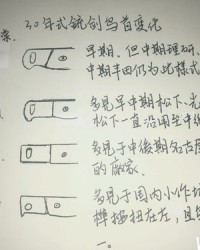 30年式銃剑鸟首变化
早期,但中期理研、
中期丰田仍为此样式
多見早中期松下、光
松下一直沿用至中後
多見于中後期名古屋
的廠家.
多見于国内小作坊
榫槽扭在左,且